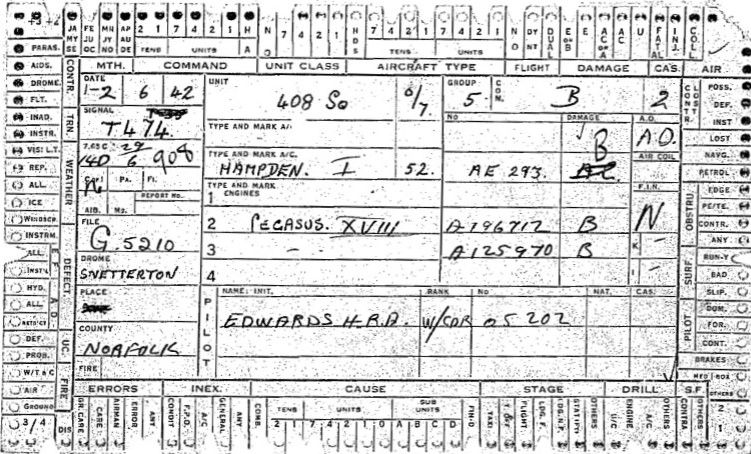 JA FE MH AP 2 1 7 4 2 1 H N 7 4 2 1 HDS 7 4 2 1 7 4 2 1 N DY DUAL E E AC AC U FATAL INJ. COLL.
MY JU JY AU A O O NT OR B OR A
SE OC NO DE TENS UNITS TENS UNITS
MTH. COMMAND UNIT CLASS AIRCRAFT TYPE FLIGHT DAMAGE CAS. AIR
PARAS.
AIDS.
DROME.
FLT.
INAD.
INSTR.
VISI L.T.
REP.
ALL.
ICE
WINDSCP.
INSTRM.
ALL.
INST'L
HYD.
ALL.
DEF.
PROB.
W/T & C
AIR
GROUND
3/4
CONTR.
TRN.
WEATHER
DEFECT
UC.
FIRE
DIS
DATE
1-2 6 42
UNIT
408 Sq
GROUP
5.
CON.
B
2
SIGNAL
T474.
TYPE AND MARK A/C
NO
DAMAGE
B
A.O.
A.O.
7.65 C
29
140 6 908
TYPE AND MARK A/C.
HAMPDEN. I 52. AE 293.
AIR COIL
Cat Pa. Fl.
REPORT No.
AIB. Mo.
TYPE AND MARK
ENGINES
1
F.I.N.
N
FILE
G.5210
2 PEGASUS. XVIII A796712 B
3 - A125970 B
K -
I -
DROME
SNETTERTON
4
PLACE
PILOT
NAME: INIT. RANK No NAT. CAS.
EDWARDS H.R.A. W/CDR 05202
COUNTY
NORFOLK
FIRE
CONTR.
LOST
OBSTRU.
SURF.
PILOT
POSS.
DEF.
INST
LOST
NAVG.
PETROL
EDGE
PE/TE.
CONTR.
ANY
RUN-Y
BAD
SLIP.
DOM.
FOR.
CONT.
BRAKES
OTHERS
2
1
ERRORS INEX. CAUSE STAGE DRILL. S.F.
GR. CARE CARE AIRMAN ERROR ANY CONDIT F.P.D. A/C GENERAL ANY COMB. TENS UNITS SUB UNITS FIN-D TAXI T. OFF FLIGHT LDG. F. LDG. N.F. STAT(FLY) OTHERS U/C ENGINE A/C OTHERS CONTRA OTHERS
2 1 7 4 2 1 0 A B C D